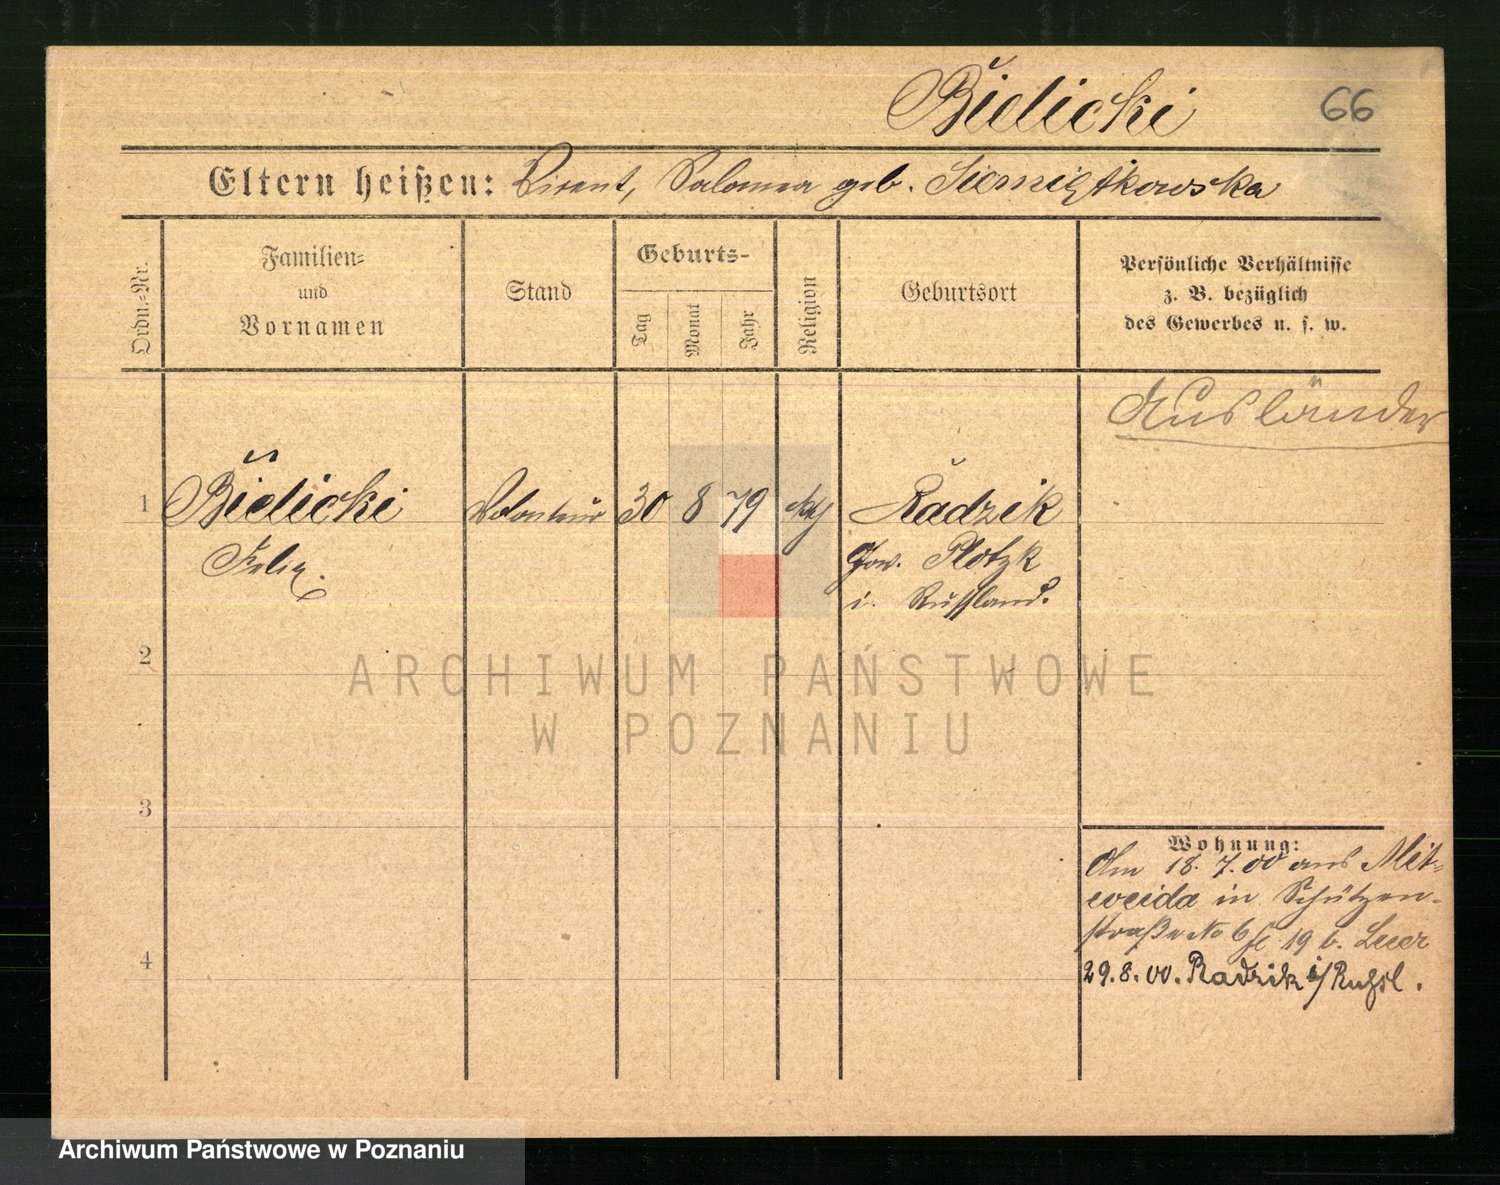 Bielicki
66
Eltern heißen: Vincent, Salomea geb.
Ordn.=Nr.
Familien=
und
Vornamen
Stand
Geburts-
Tag
Monat
Jahr
Religion
Geburtsort
Persönliche Verhältnisse
z. B. bezüglich
des Gewerbes u. s. w.
Ausländer
1
Bielicki
Volontär
30
8
79
kth
Radzik
Felix.
Gouv. Plotzk
i. Russland.
2
ARCHIWUM PAŃSTWOWE
W POZNANIU
3
Wohnung:
Am 18. 7. 00 aus Mit=
weida in Schützen-
straße No 6 19 b.
4
29.8.00. Radzik i/Rußl.
Archiwum Państwowe w Poznaniu